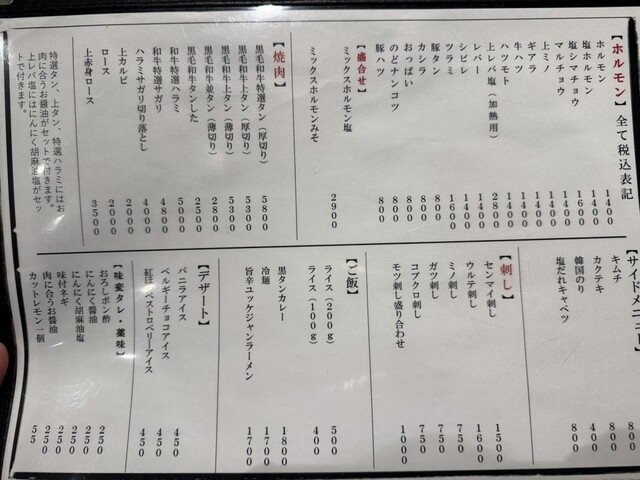 【ホルモン】全て税込表記
ホルモン 1400
塩ホルモン 1400
塩シマチョウ 1600
マルチョウ 1400
上ミノ 1400
ギアラ 1400
牛ハツ 1400
ハツモト 1400
上レバ塩（加熱用） 2800
レバー 1400
シビレ 1400
ツラミ 1600
豚タン 800
カシラ 800
おっぱい 800
のどナンコツ 800
豚ハツ 800
【盛合せ】
ミックスホルモン塩
ミックスホルモンみそ 2900
【焼肉】
黒毛和牛特選タン（厚切り） 5800
黒毛和牛上タン（厚切り） 5300
黒毛和牛上タン（薄切り） 5300
黒毛和牛並タン（薄切り） 2800
黒毛和牛タンした 2500
和牛特選ハラミ 5000
和牛特選サガリ 4800
ハラミサガリ切り落とし 4000
上カルビ 2000
ロース 2000
上赤身ロース 3500
特選タン、上タン、特選ハラミにはお
肉に合うお醤油がセットで付きます。
上レバ塩にはにんにく胡麻油塩がセッ
トで付きます。
【サイドメニュー】
キムチ 800
カクテキ 800
韓国のり 400
塩だれキャベツ 800
【刺し】
センマイ刺し 1500
ウルテ刺し 1600
ミノ刺し 750
ガツ刺し 750
コブクロ刺し 750
モツ刺し盛り合わせ 1000
【ご飯】
ライス（200g） 500
ライス（100g） 400
黒タンカレー 1800
冷麺 1700
旨辛ユッケジャンラーメン 1700
【デザート】
バニラアイス 450
ベルギーチョコアイス 450
紅ほっぺストロベリーアイス 450
【味変タレ・薬味】
おろしポン酢 250
にんにく醤油 250
にんにく胡麻油塩 250
味付ネギ 250
肉に合うお醤油 250
カットレモン一個 55